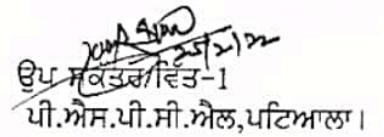 25/2/22
ਉਪ ਸਕੱਤਰ/ਵਿੱਤ-1
ਪੀ.ਐਸ.ਪੀ.ਸੀ.ਐਲ,ਪਟਿਆਲਾ।